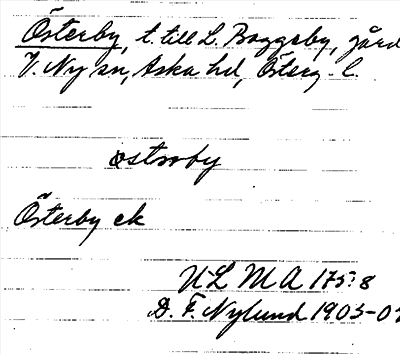 Österby, t. till L. Boggeby, gård
V. Ny sn, Aska hd, Österg. l.
östroby
Österby ek
ULMA 175:8
D. F. Nylund 1903-07